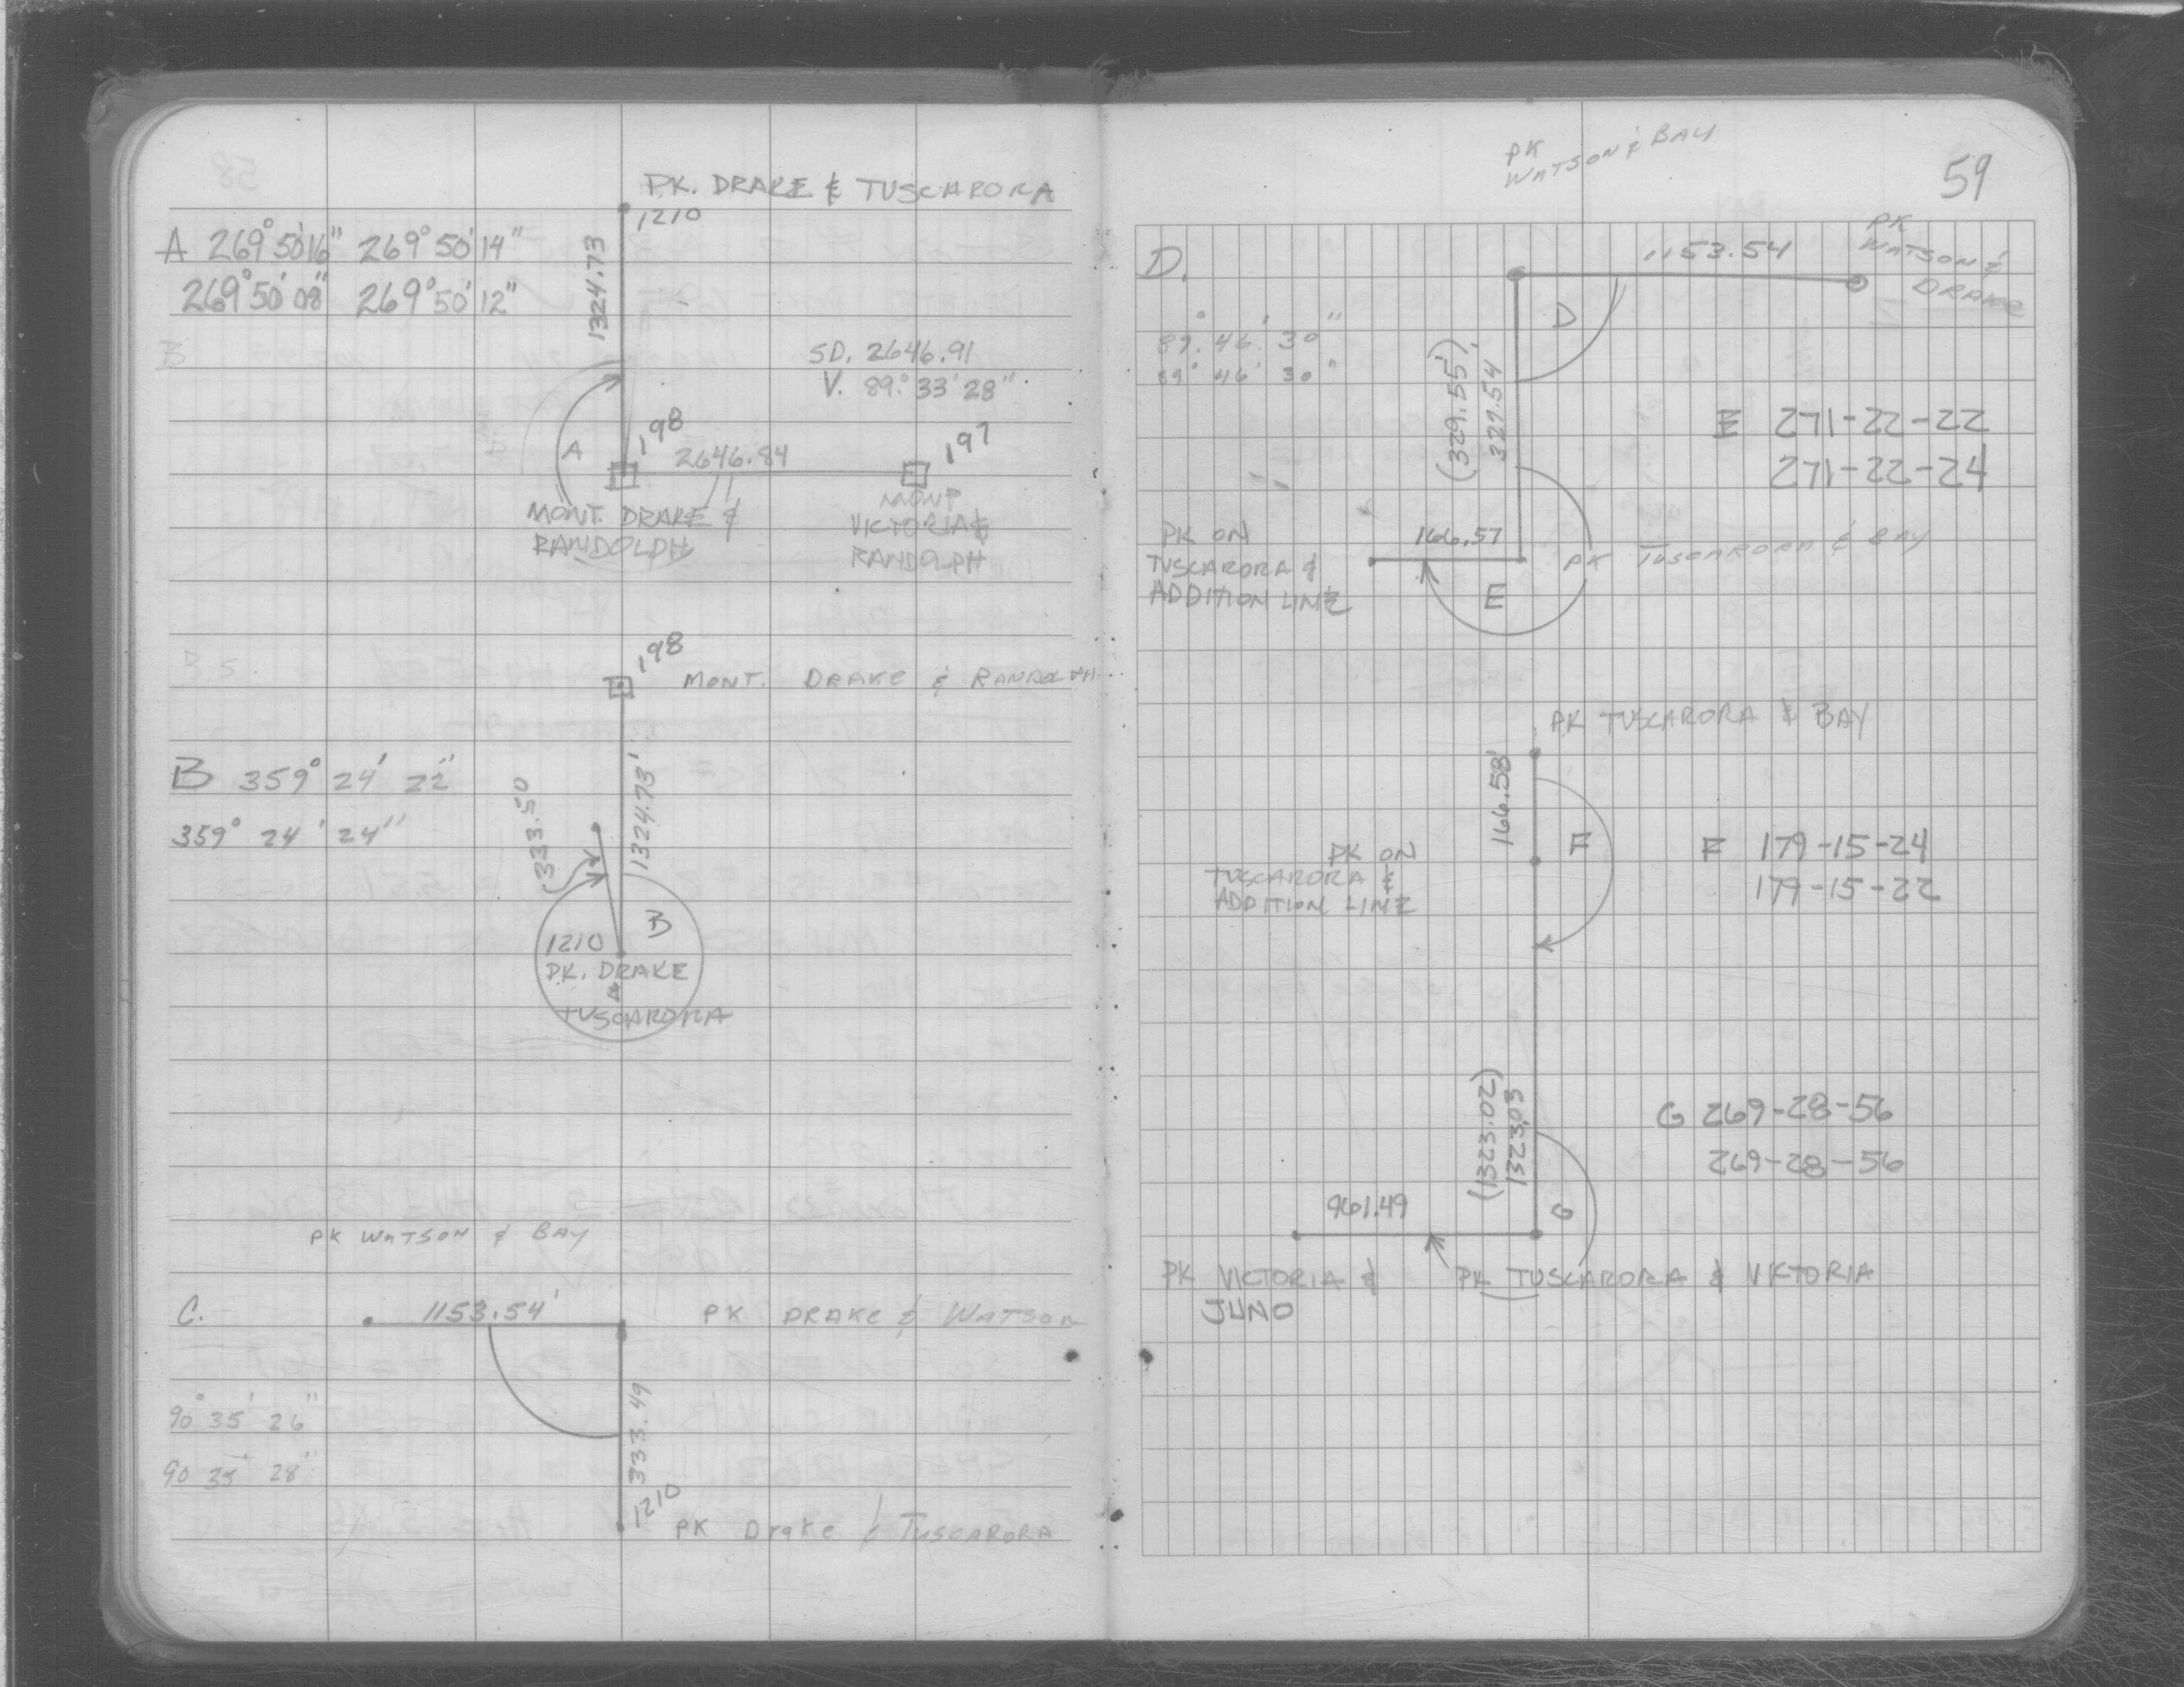 PK. DRAKE & TUSCARORA
1210
A 269° 50' 16" 269° 50' 14"
269° 50' 08" 269° 50' 12"
1324.73
B
SD. 2646.91
V. 89° 33' 28"
A
198
2646.84
197
MONT. DRAKE &
RANDOLPH
MONT
VICTORIA &
RANDOLPH
B.S.
198
MONT. DRAKE & RANDOLPH
B 359° 24' 22"
359° 24' 24"
333.50
1324.73'
B
1210
PK. DRAKE
&
TUSCARORA
PK WATSON & BAY
C.
1153.54'
PK DRAKE & WATSON
90° 35' 26"
90 35' 28"
333.49
1210
PK Drake & TUSCARORA
59
PK
WATSON & BAY
D.
1153.54
PK
WATSON &
DRAKE
D
89° 46' 30"
89° 46' 30"
(329.55')
329.54
E 271-22-22
271-22-24
PK ON
TUSCARORA &
ADDITION LINE
166.57
PK TUSCARORA & BAY
E
PK TUSCARORA & BAY
166.58'
F
F 179-15-24
179-15-22
PK ON
TUSCARORA &
ADDITION LINE
(1323.02)
1323.03
G 269-28-56
269-28-56
961.49
G
PK VICTORIA &
JUNO
PK TUSCARORA & VIKTORIA